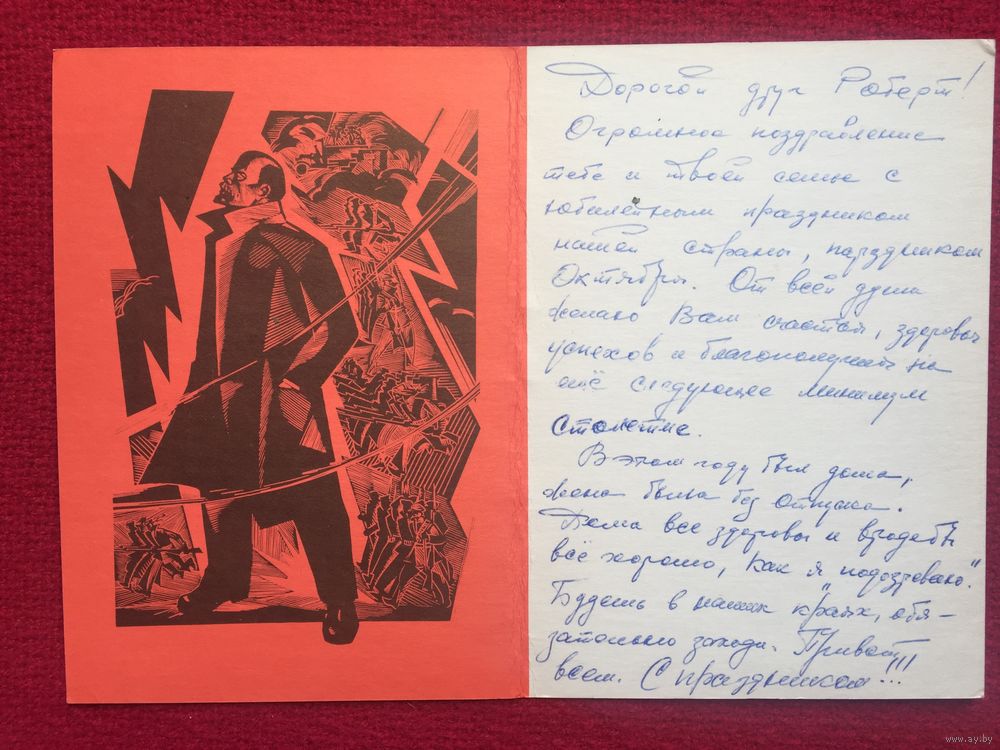 Дорогой друг Роберт!
Огромное поздравление
тебе и твоей семье с
юбилейным праздником
нашей страны, праздником
Октября. От всей души
желаю Вам счастья, здоровья
успехов и благополучия на
ещё следующее минимум
столетие.
В этом году был дома,
жена была без отпуска.
Дома все здоровы и вроде бы
всё хорошо, как я "подозреваю".
Будешь в наших краях, обя-
зательно заходи. Привет
всем. С праздником!!!
www.ay.by